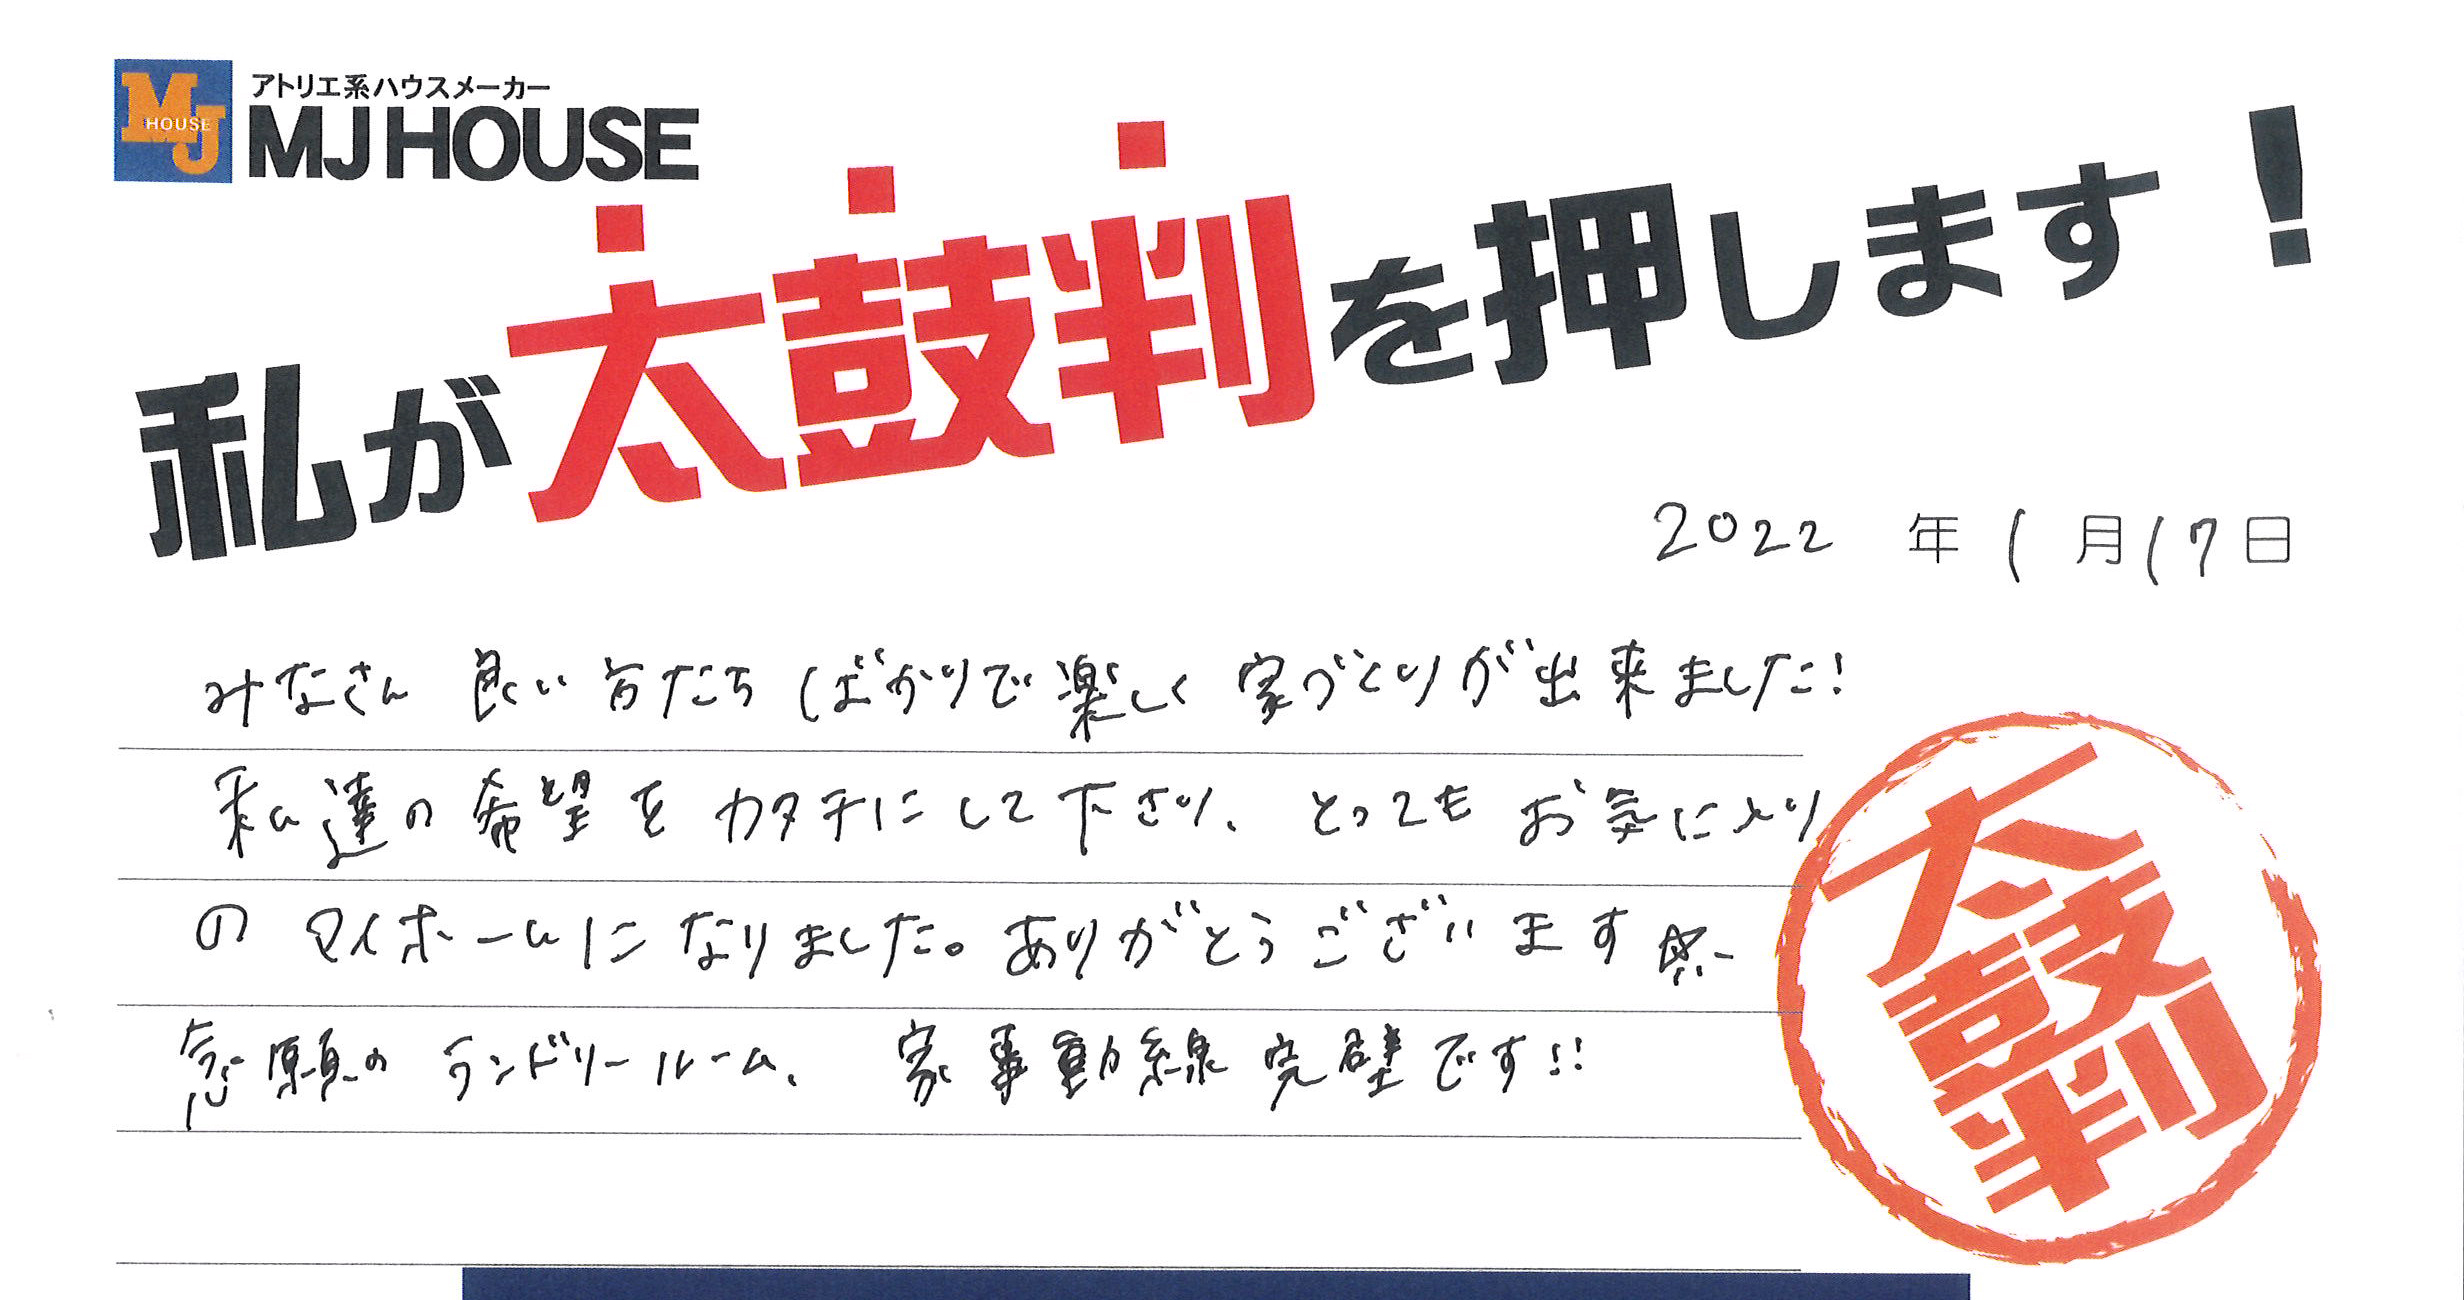 MJ HOUSE
アトリエ系ハウスメーカー
MJ HOUSE
私が太鼓判を押します!
2022 年 1 月 17 日
みなさん 良い方たちばかりで楽しく 家づくりが出来ました!
私達の希望を カタチにして下さり、とっても お気に入り
の マイホームに なりました。ありがとうございます
念願の ランドリールーム、 家事動線完璧です!!
太鼓判